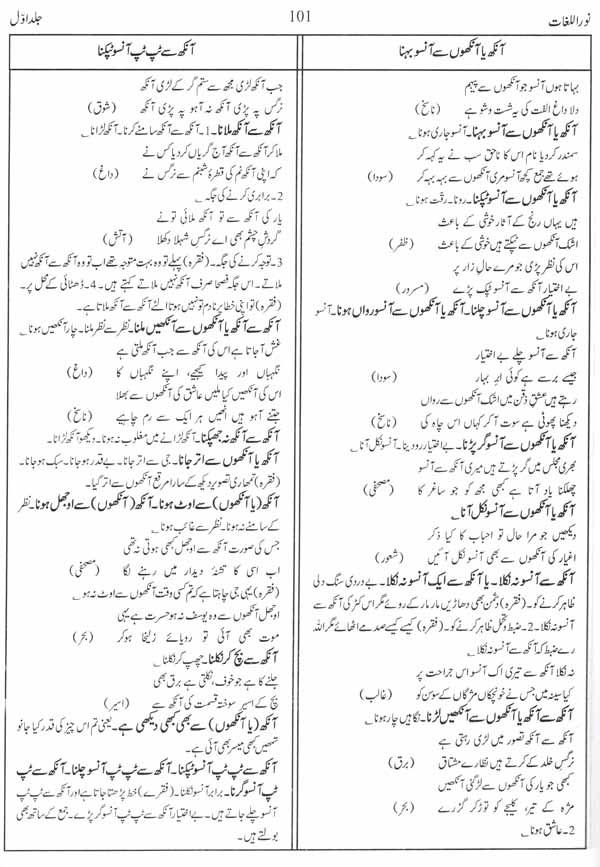 نور اللغات
101
جلد اوّل
آنکھ یا آنکھوں سے آنسو بہنا
آنکھ سے ٹپ ٹپ آنسو ٹپکنا
بہاتا ہوں آنسو جو آنکھوں سے پیہم
دلا داغِ الفت کی یہ شست وشو ہے (ناسخ)
آنکھ یا آنکھوں سے آنسو بہنا۔ آنسو جاری ہونا ؎
سمندر کر دیا نام اس کا ناحق سب نے کہہ کہہ کر
ہوئے تھے جمع کچھ آنسو مری آنکھوں سے بہہ بہہ کر (سودا)
آنکھ یا آنکھوں سے آنسو ٹپکنا۔ رونا۔ رقّت ہونا ؎
ہیں یہاں رنج کے آثار خوشی کے باعث
اشک آنکھوں سے ٹپکتے ہیں خوشی کے باعث (ظفر)
اس کی نظر پڑی جو مرے حالِ زار پر
بے اختیار آنکھ سے آنسو ٹپک پڑے (مسرور)
آنکھ یا آنکھوں سے آنسو چلنا۔ آنکھ یا آنکھوں سے آنسو رواں ہونا۔ آنسو
جاری ہونا ؎
آنکھ سے آنسو چلے بے اختیار
جیسے برسے ہے کوئی ابرِ بہار (سودا)
رہتے ہیں عشقِ ذقن میں اشک آنکھوں سے رواں
دیکھنا پھوٹی ہے سوت آ کر کہاں اس چاہ کی (ناسخ)
آنکھ یا آنکھوں سے آنسو گر پڑنا۔ بے اختیار رو دینا۔ آنسو نکل آنا ؎
بھری مجلس میں گر پڑتے ہیں میری آنکھ سے آنسو
چھلکنا یاد آتا ہے کبھی مجھ کو جو ساغر کا (مصحفی)
آنکھ یا آنکھوں سے آنسو نکل آنا ؎
دیکھیں جو مرا حال تو احباب کا کیا ذکر
اغیار کی آنکھوں سے بھی آنسو نکل آئیں (شعور)
آنکھ سے آنسو نہ نکلا۔ یا آنکھ سے ایک آنسو نہ نکلا۔ بے دردی سنگ دلی
ظاہر کرنے کو۔ (فقرہ) دشمن بھی دھاڑیں مار مار کے روئے مگر اس کٹر کی آنکھ سے
آنسو نہ نکلا۔ 2۔ ضبط وتحمّل ظاہر کرنے کو۔ (فقرہ) کیسے کیسے صدمے اٹھائے مگر اللہ
رے ضبط کہ آنکھ سے آنسو نہ نکلا ؎
نہ نکلا آنکھ سے تیری اک آنسو اس جراحت پر
کیا سینہ میں جس نے خونچکاں مژگاں کے سوزن کو (غالب)
آنکھ سے آنکھ یا آنکھوں سے آنکھیں لڑنا۔ نگاہیں چار ہونا ؎
آنکھ سے آنکھ تصور میں لڑی رہتی ہے
نرگسِ خلد کے کرتے ہیں نظارے مشتاق (برق)
کبھی جو یار کی آنکھوں سے لڑ گئی آنکھیں
مژہ کے تیر، کلیجے کو توڑ کر گزرے (بحر)
2۔ عاشق ہونا ؎
جب آنکھ لڑی مجھ سے ستم گر کے لڑی آنکھ
نرگس پہ پڑی آنکھ نہ آہو پہ پڑی آنکھ (شوق)
آنکھ سے آنکھ ملانا۔ 1۔ آنکھ سے آنکھ سامنے کرنا۔ آنکھ لڑانا ؎
ملا کر آنکھ سے آنکھ آج گریاں کر دیا کس نے
کہ اپنی آنکھ نم کی قطرۂ شبنم سے نرگس نے (داغ)
2۔ برابری کرنے کی جگہ ؎
یار کی آنکھ سے تو آنکھ ملائی تو نے
گردشِ چشم بھی اے نرگسِ شہلا دکھلا (آتش)
3۔ توجہ کرنے کی جگہ۔ (فقرہ) پہلے تو وہ بہت متوجہ تھے اب تو وہ آنکھ سے آنکھ نہیں
ملاتے۔ اس جگہ فصحا صرف آنکھ نہیں ملاتے کہتے ہیں۔ 4۔ ڈھٹائی کے محل پر۔
(فقرہ) تو اپنی خطا پر نادم تو نہیں ہوتا الٹے آنکھ سے آنکھ ملاتا ہے۔
آنکھ سے آنکھ یا آنکھوں سے آنکھیں ملنا۔ نظر سے نظر ملنا۔ چار آنکھیں ہونا ؎
غش آ جاتا ہے اس کی آنکھ سے جب آنکھ ملتی ہے
نگہباں اور پیدا کیجیے، اپنے نگہباں کا (داغ)
اس کی آنکھیں کیا ملیں عاشق کی آنکھوں سے بھلا
جتنے آہو ہیں انھیں ہر ایک سے رم چاہیے (ناسخ)
آنکھ سے آنکھ نہ جھپکنا۔ آنکھ لڑانے میں مغلوب نہ ہونا۔ دیکھو آنکھ لڑانا۔
آنکھ یا آنکھوں سے اتر جانا۔ جی سے اتر جانا۔ بے قدر ہو جانا۔ سبک ہو جانا۔
(فقرہ) تمھاری تصویر دیکھ کے سارا مرقع آنکھوں سے اتر گیا۔
آنکھ (یا آنکھوں) سے اوٹ ہونا۔ آنکھ (آنکھوں) سے اوجھل ہونا۔ نظر
کے سامنے نہ ہونا۔ نظر سے غائب ہونا ؎
جس کی صورت آنکھ سے اوجھل کبھی ہوتی نہ تھی
اب اسی کا تشنۂ دیدار میں رہنے لگا (مصحفی)
(فقرہ) یہی جی چاہتا ہے کہ تم کسی وقت آنکھوں سے اوٹ نہ ہو ؎
اوجھل آنکھوں سے وہ یوسف نہ ہو حسرت ہے یہی
موت بھی آئی تو رویائے زلیخا ہو کر (بحر)
آنکھ سے بچ کر نکلنا۔ چھپ کر نکلنا ؎
جلنے کا ہے جو خوف، نکلتی ہے برق بھی
بچ کے اسیر سوختہ قسمت کی آنکھ سے (اسیر)
آنکھ (یا آنکھوں) سے بھی کبھی دیکھی ہے۔ یعنی تم اس چیز کی قدر کیا جانو
تمھیں کبھی میسر بھی آئی ہے۔
آنکھ سے ٹپ ٹپ آنسو ٹپکنا۔ آنکھ سے ٹپ ٹپ آنسو چلنا۔ آنکھ سے ٹپ
ٹپ آنسو گرنا۔ برابر آنسو نکلنا۔ (فقرے) خط پڑھتا جاتا ہے اور آنکھ سے ٹپ ٹپ
آنسو چلے جاتے ہیں۔ بے اختیار آنکھ سے ٹپ ٹپ آنسو گر پڑے۔ جمع کے ساتھ بھی
بولتے ہیں۔